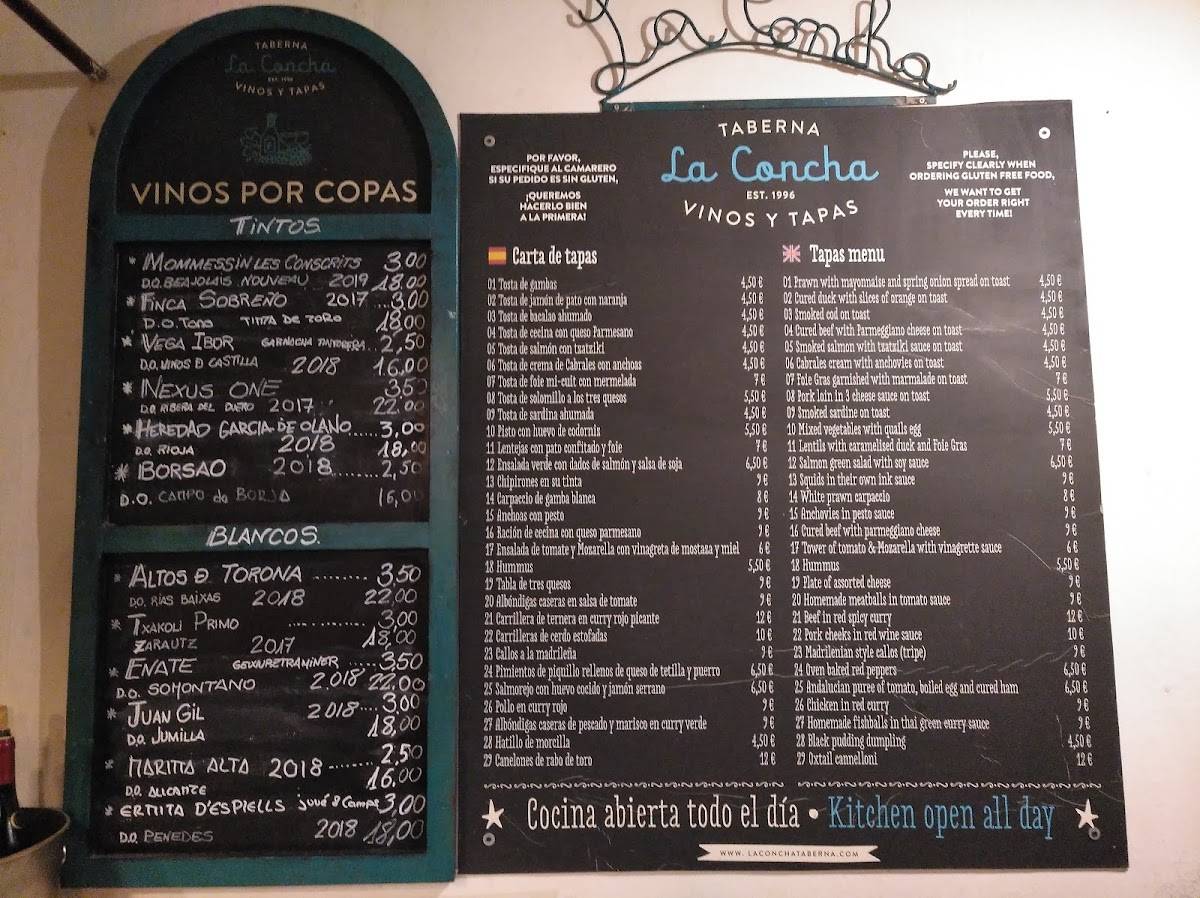 TABERNA
La Concha
EST. 1996
VINOS Y TAPAS
VINOS POR COPAS
TINTOS
* MOMMESSIN LES CONSCRITS 3,00
D.O. BEAJOLAIS NOUVEAU 2019 18,00
* FINCA SOBREÑO 2017...3,00
D.O. Toro TINTA DE TORO 18,00
* VEGA IBOR GARNACHA TINTORERA..2,50
D.O. VINOS D CASTILLA 2018 16,00
* NEXUS ONE 3,50
D.O. RIBERA DEL DUERO 2017 22,00
* HEREDAD GARCIA DE OLANO.....3,00
D.O. RIOJA 2018 18,00
* BORSAO 2018........2,50
D.O. CAMPO de BORJA 16,00
BLANCOS.
* ALTOS D TORONA .......... 3,50
D.O. RÍAS BAIXAS 2018 22,00
* TXAKOLI PRIMO .............. 3,00
ZARAUTZ 2017 18,00
* ENATE GEWURZTRAMINER ....3,50
D.O. SOMONTANO 2.018 22,00
* JUAN GIL 2018....3,00
D.O. JUMILLA 18,00
* MARITTA ALTA 2018........2,50
D.O. ALICANTE 16,00
* ERMITA D'ESPIELLS Juvé & Camps 3,00
D.O. PENEDES 2018 18,00
La Concha
TABERNA
La Concha
EST. 1996
VINOS Y TAPAS
POR FAVOR,
ESPECIFIQUE AL CAMARERO
SI SU PEDIDO ES SIN GLUTEN,
¡QUEREMOS
HACERLO BIEN
A LA PRIMERA!
PLEASE,
SPECIFY CLEARLY WHEN
ORDERING GLUTEN FREE FOOD,
WE WANT TO GET
YOUR ORDER RIGHT
EVERY TIME!
Carta de tapas
01 Tosta de gambas 4,50 €
02 Tosta de jamón de pato con naranja 4,50 €
03 Tosta de bacalao ahumado 4,50 €
04 Tosta de cecina con queso Parmesano 4,50 €
05 Tosta de salmón con tzatziki 4,50 €
06 Tosta de crema de Cabrales con anchoas 4,50 €
07 Tosta de foie mi-cuit con mermelada 7 €
08 Tosta de solomillo a los tres quesos 5,50 €
09 Tosta de sardina ahumada 4,50 €
10 Pisto con huevo de codorniz 5,50 €
11 Lentejas con pato confitado y foie 7 €
12 Ensalada verde con dados de salmón y salsa de soja 6,50 €
13 Chipirones en su tinta 9 €
14 Carpaccio de gamba blanca 8 €
15 Anchoas con pesto 9 €
16 Ración de cecina con queso parmesano 9 €
17 Ensalada de tomate y Mozarella con vinagreta de mostaza y miel 6 €
18 Hummus 5,50 €
19 Tabla de tres quesos 9 €
20 Albóndigas caseras en salsa de tomate 9 €
21 Carrillera de ternera en curry rojo picante 12 €
22 Carrilleras de cerdo estofadas 10 €
23 Callos a la madrileña 9 €
24 Pimientos de piquillo rellenos de queso de tetilla y puerro 6,50 €
25 Salmorejo con huevo cocido y jamón serrano 6,50 €
26 Pollo en curry rojo 9 €
27 Albóndigas caseras de pescado y marisco en curry verde 9 €
28 Hatillo de morcilla 4,50 €
29 Canelones de rabo de toro 12 €
Tapas menu
01 Prawn with mayonnaise and spring onion spread on toast 4,50 €
02 Cured duck with slices of orange on toast 4,50 €
03 Smoked cod on toast 4,50 €
04 Cured beef with Parmeggiano cheese on toast 4,50 €
05 Smoked salmon with tzatziki sauce on toast 4,50 €
06 Cabrales cream with anchovies on toast 4,50 €
07 Foie Gras garnished with marmalade on toast 7 €
08 Pork loin in 3 cheese sauce on toast 5,50 €
09 Smoked sardine on toast 4,50 €
10 Mixed vegetables with quails egg 5,50 €
11 Lentils with caramelised duck and Foie Gras 7 €
12 Salmon green salad with soy sauce 6,50 €
13 Squids in their own ink sauce 9 €
14 White prawn carpaccio 8 €
15 Anchovies in pesto sauce 9 €
16 Cured beef with parmeggiano cheese 9 €
17 Tower of tomato & Mozarella with vinagrette sauce 6 €
18 Hummus 5,50 €
19 Plate of assorted cheese 9 €
20 Homemade meatballs in tomato sauce 9 €
21 Beef in red spicy curry 12 €
22 Pork cheeks in red wine sauce 10 €
23 Madrilenian style callos (tripe) 9 €
24 Oven baked red peppers 6,50 €
25 Andalucian puree of tomato, boiled egg and cured ham 6,50 €
26 Chicken in red curry 9 €
27 Homemade fishballs in thai green curry sauce 9 €
28 Black pudding dumpling 4,50 €
29 Oxtail cannelloni 12 €
Cocina abierta todo el día • Kitchen open all day
WWW.LACONCHATABERNA.COM